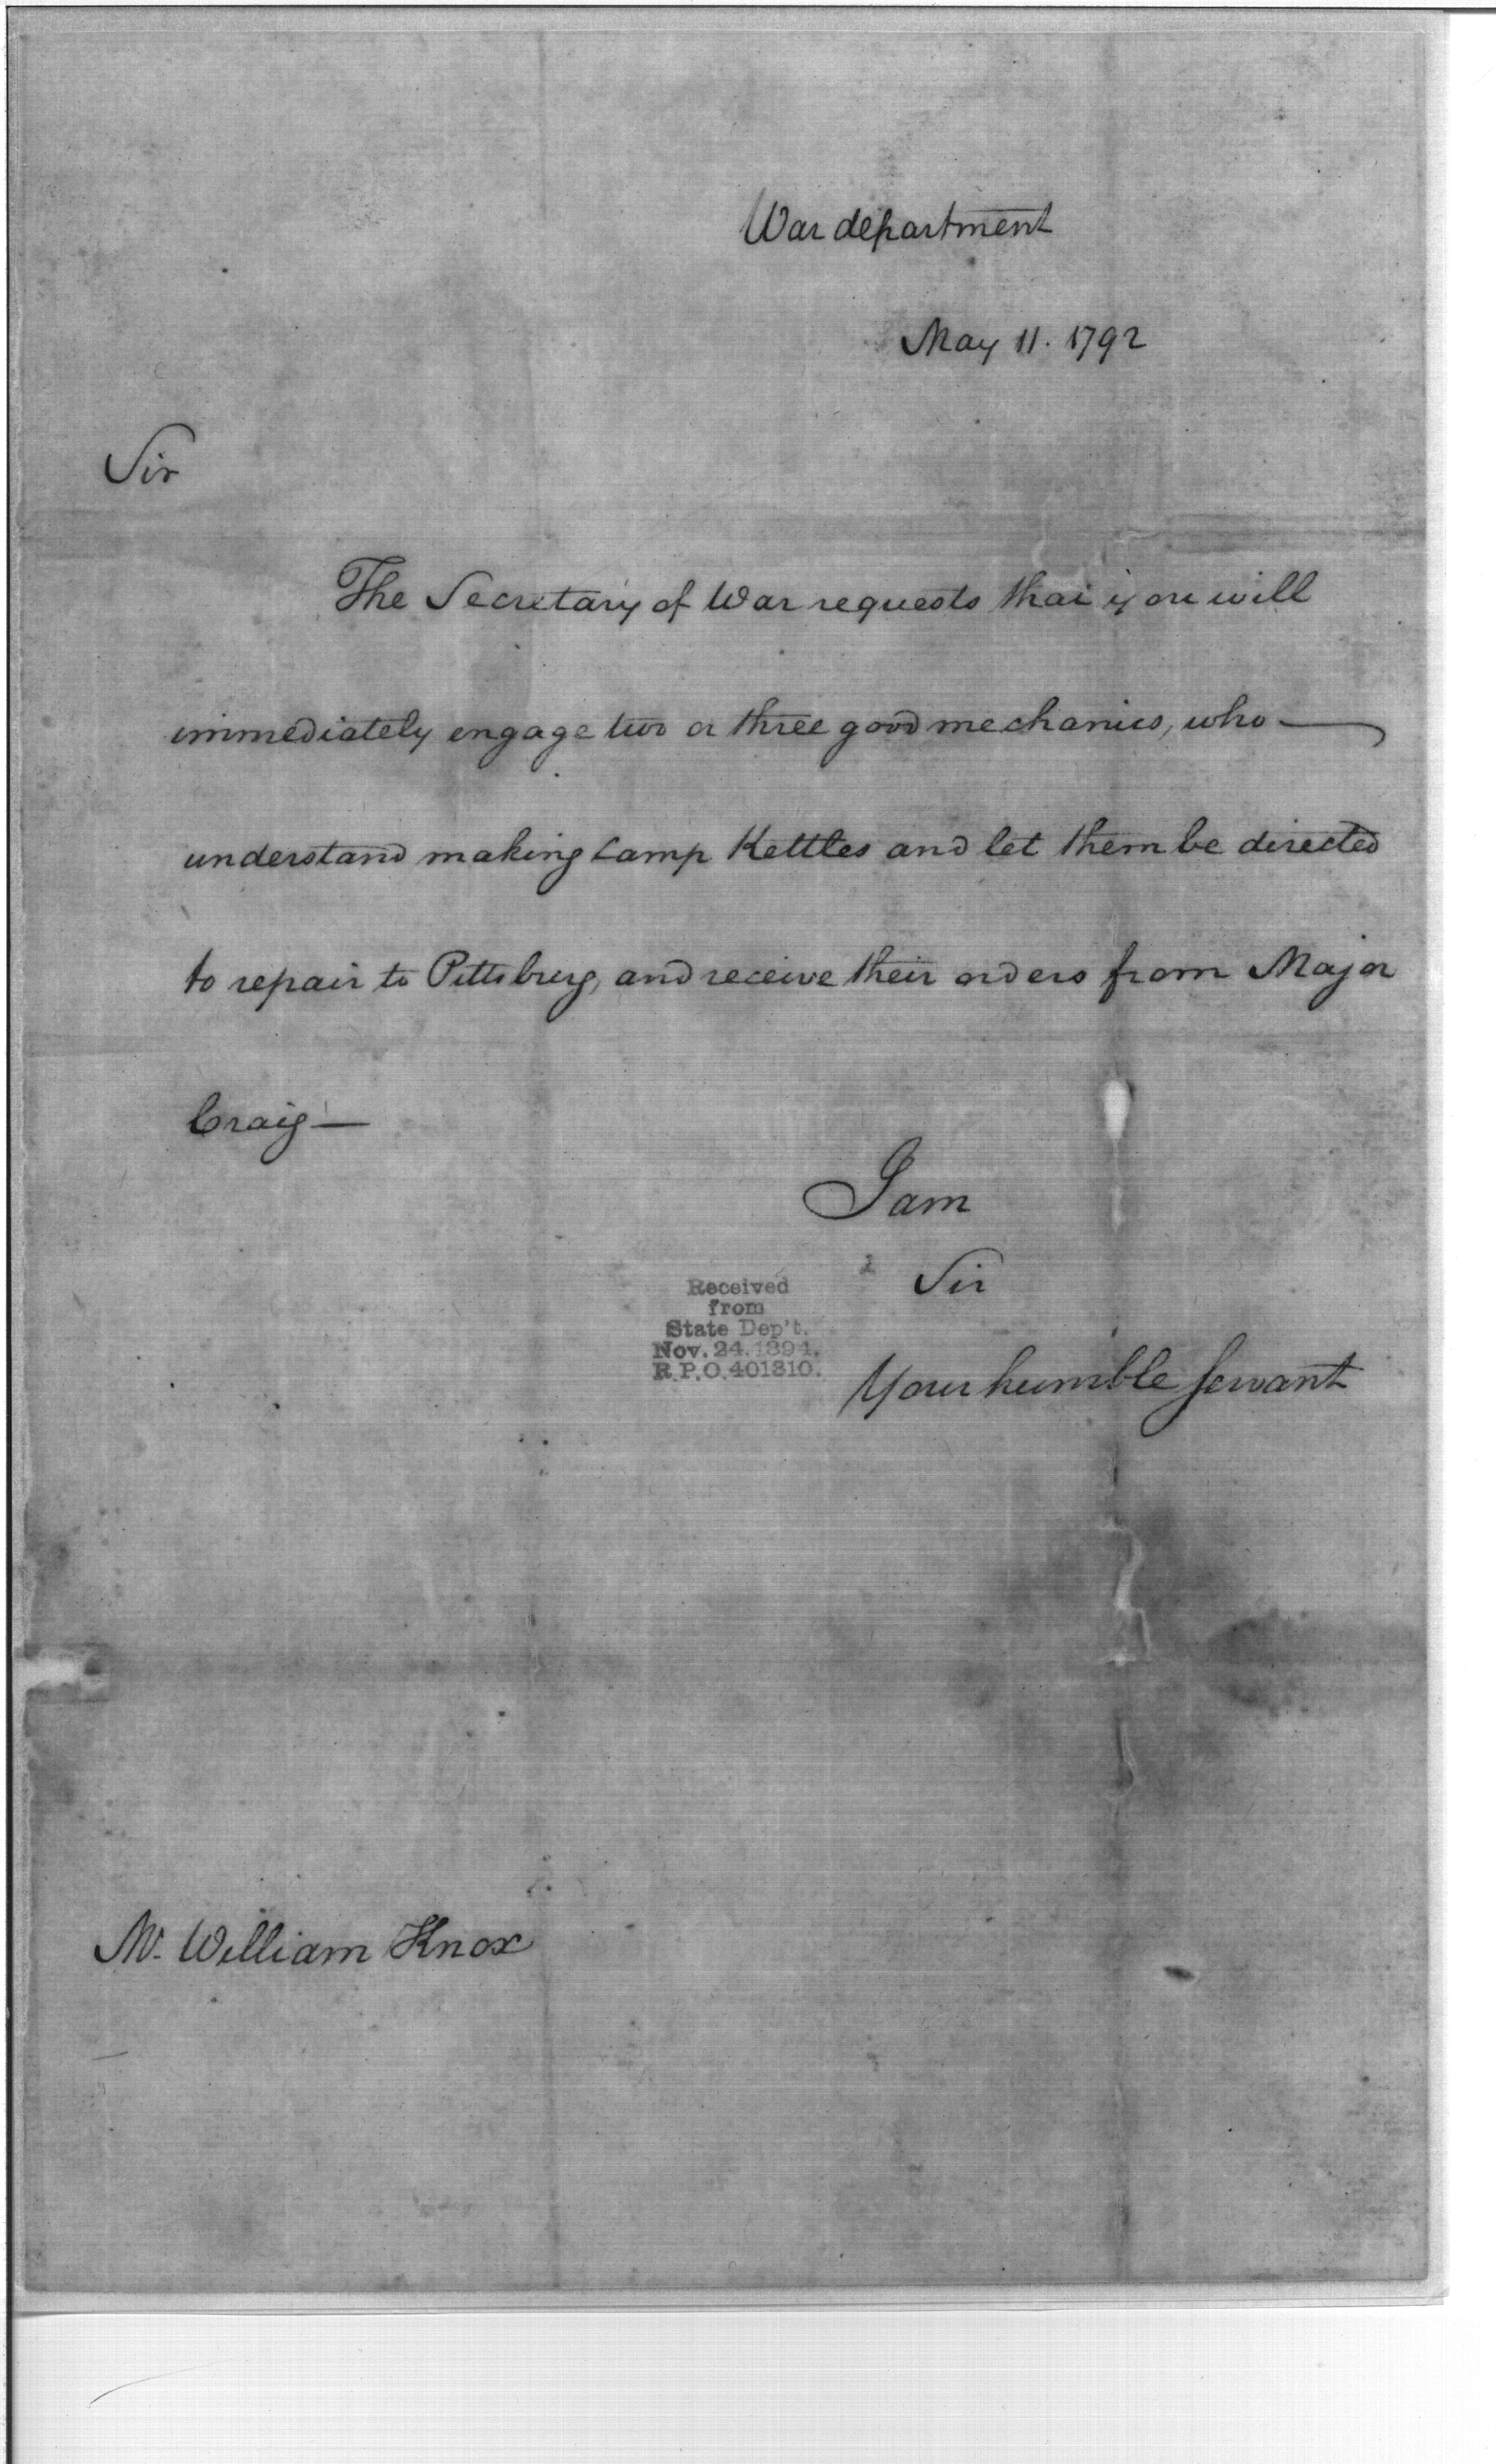 War department
May 11. 1792
Sir
The Secretary of War requests that you will
immediately engage two or three good mechanics, who
understand making Camp Kettles and let them be directed
to repair to Pittsburg, and receive their orders from Major
Craig —
I am
Sir
Your humble servant
Received
from
State Dep't.
Nov. 24. 1894.
R.P.O. 401310.
Mr. William Knox